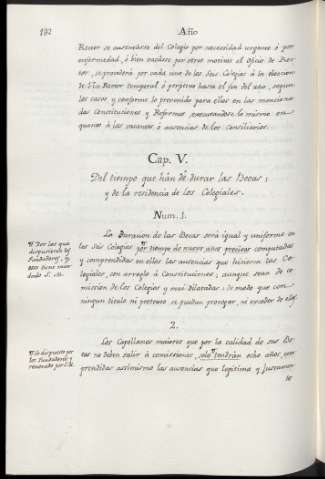 192 Año
Rector se ausentare del Colegio por necesidad urgente ó por
enfermedad, ó bien vacâse por otros motivos el Oficio de Rec-
tor, se procederá por cada uno de los Seis Colegios à la eleccion
de Vice Rector temporal ó perpetuo hasta el fin del año, segun
los casos y conforme lo prevenido para ellos en las menciona-
das Constituciones y Reformas executandose lo mismo en
quanto à las vacantes ò ausencias de los Consiliarios.
Cap. V.
Del tiempo que hán de durar las Becas;
y de la residencia de los Colegiales.
Num. 1.
La Duracion de las Becas será igual y uniforme en
los Seis Colegios por tiempo de nueve años precisos computados
y comprendidas en ellos las ausencias que hicieren los Co-
legiales, con arreglo à Constituciones; aunque sean de co-
mision de los Colegios y mui dilatadas: de modo que con
ningun titulo ni pretexto se puedan prorogar, ni exceder de ellos.
2.
Los Capellanes maiores que por la calidad de sus Be-
cas no deben salir à comisiones, solo tendrán ocho años, com-
prendidas asimismo las ausencias que legitima y justamen-
te